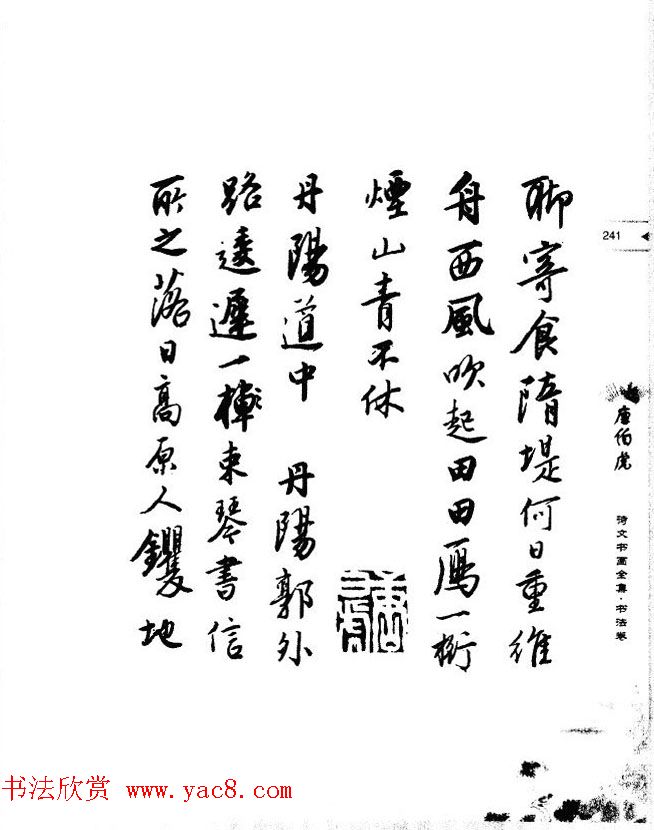 聊寄食隋堤何日重維
舟西風吹起田田鴈一
煙山青不休
丹陽道中 丹陽郭外
路逶遲一棹束琴書信
所之落日高原人钁地
241
唐伯虎
诗文书画全集·书法卷
书法欣赏 www.yac8.com